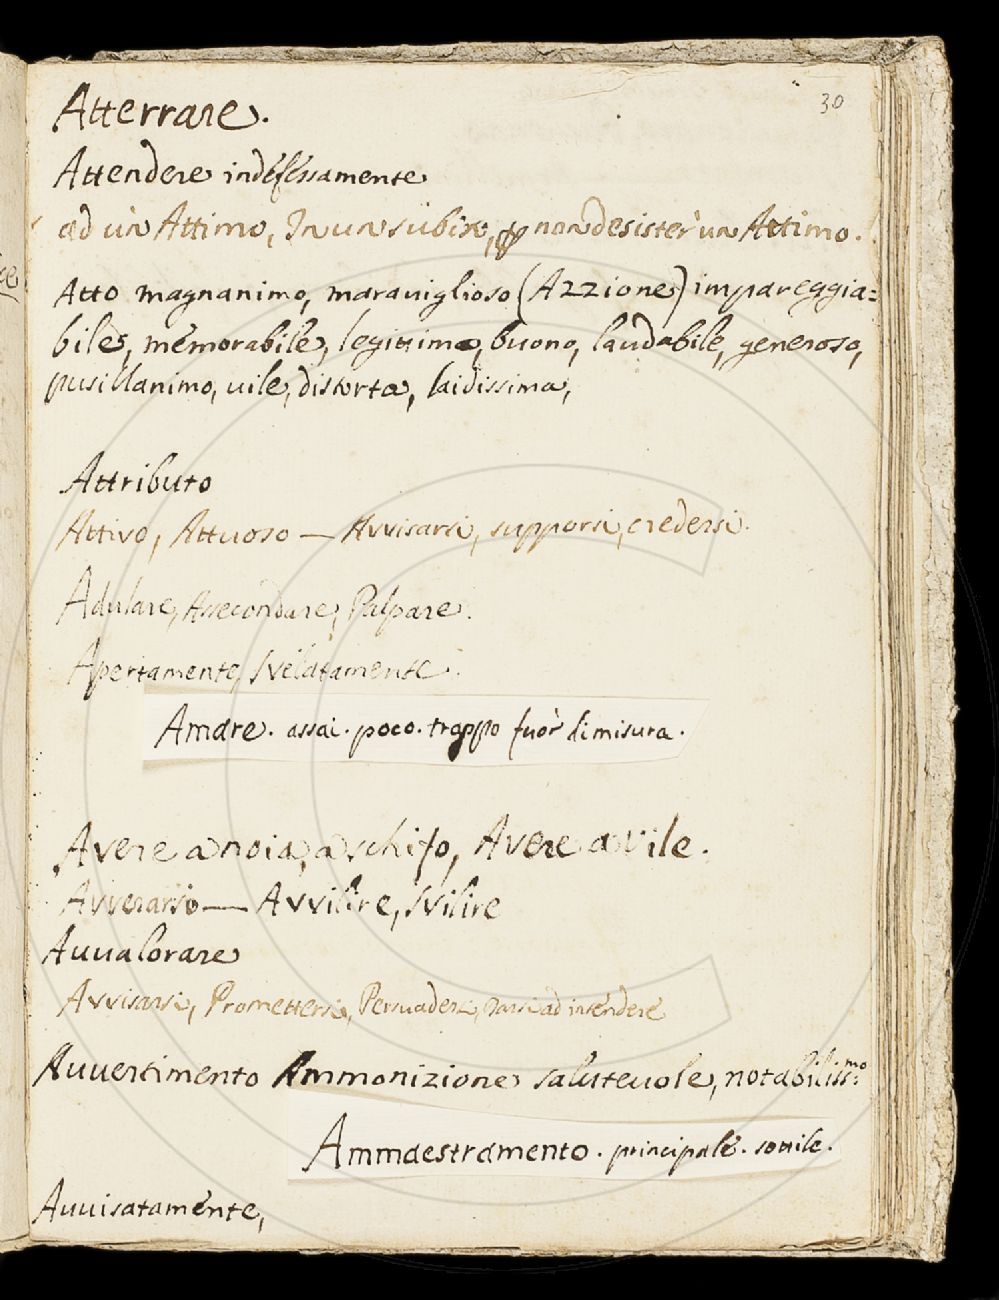 30
Atterrare.
Attendere indefessamente
ad un Attimo, In un subito, non desister un Attimo.
Atto magnanimo, marauiglioso (Azzione) impareggia=
bile, memorabile, legittima, buono, laudabile, generoso,
pusillanimo, uile, distorta, laidissima,
Attributo
Attivo, Attuoso — Avvisarsi, supporsi, credersi.
Adulare, Assecondare, Palpare.
Apertamente, Svelatamente.
Amare. assai. poco. troppo fuor di misura.
Avere a noia, a schifo, Avere a vile.
Avverarsi — Avvilire, svilire
Auualorare
Avvisarsi, Promettersi, Persuadersi, Darsi ad intendere
Auuertimento Ammonizione saluteuole, notabiliss:mo
Ammaestramento. principale. sottile.
Auuisatamente,